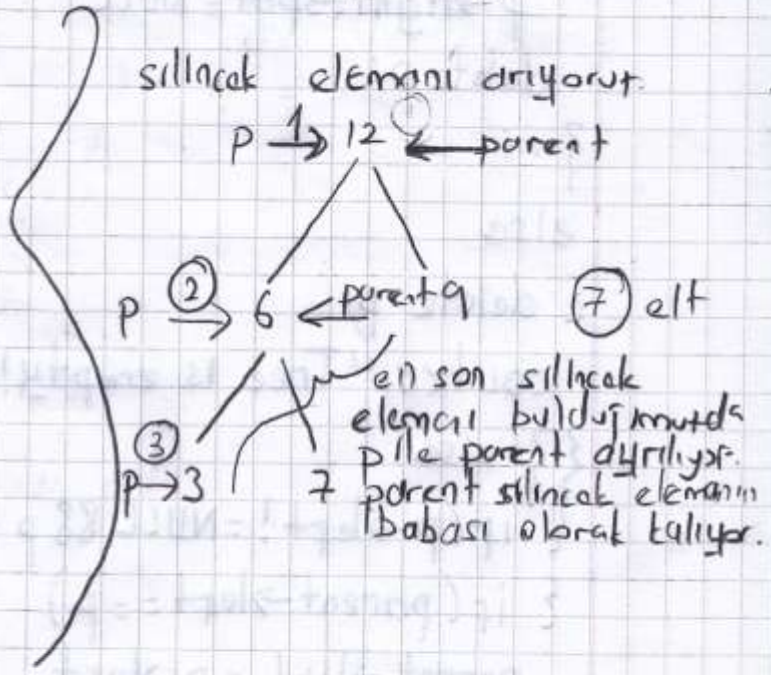 silincak elemani arıyoruz.
P 1 12 parent
P 2 6 parent 9 7 elt
en son silincak
elemanı bulduğumuzda
p ile parent ayrılıyor.
P 3 3 7 parent silincak elemanın
babası olarak kalıyor.